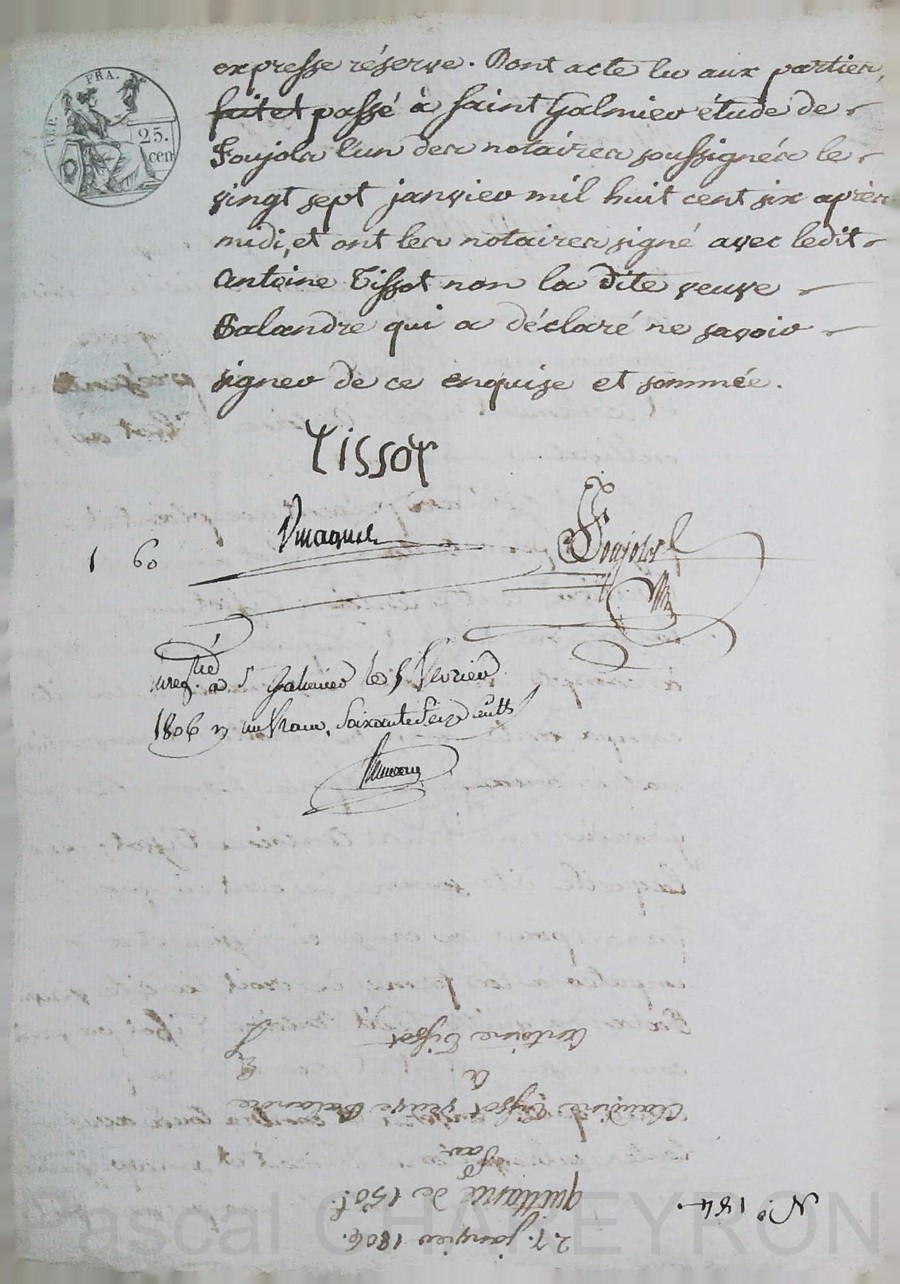 REP. FRA.
25.
cen
expresse réserve. Dont acte lu aux parties,
fait et passé à Saint Galmier étude de
Foujols l'un des notaires soussignés le
vingt sept janvier mil huit cent six après
midi, et ont les notaires signé avec ledit
Antoine Tissot non la dite veuve
Balandre qui a déclaré ne savoir
signer de ce enquise et sommée.
Tissot
Foujols
1 60
Enreg.tré à St Galmier le 5 fevrier
1806 un franc, soixante seize cents
27. janvier 1806.
quittance de 150f.
par
Claudine Tissot veuve Balandre
à
Antoine Tissot
N.° 184.
Pascal CHAREYRON